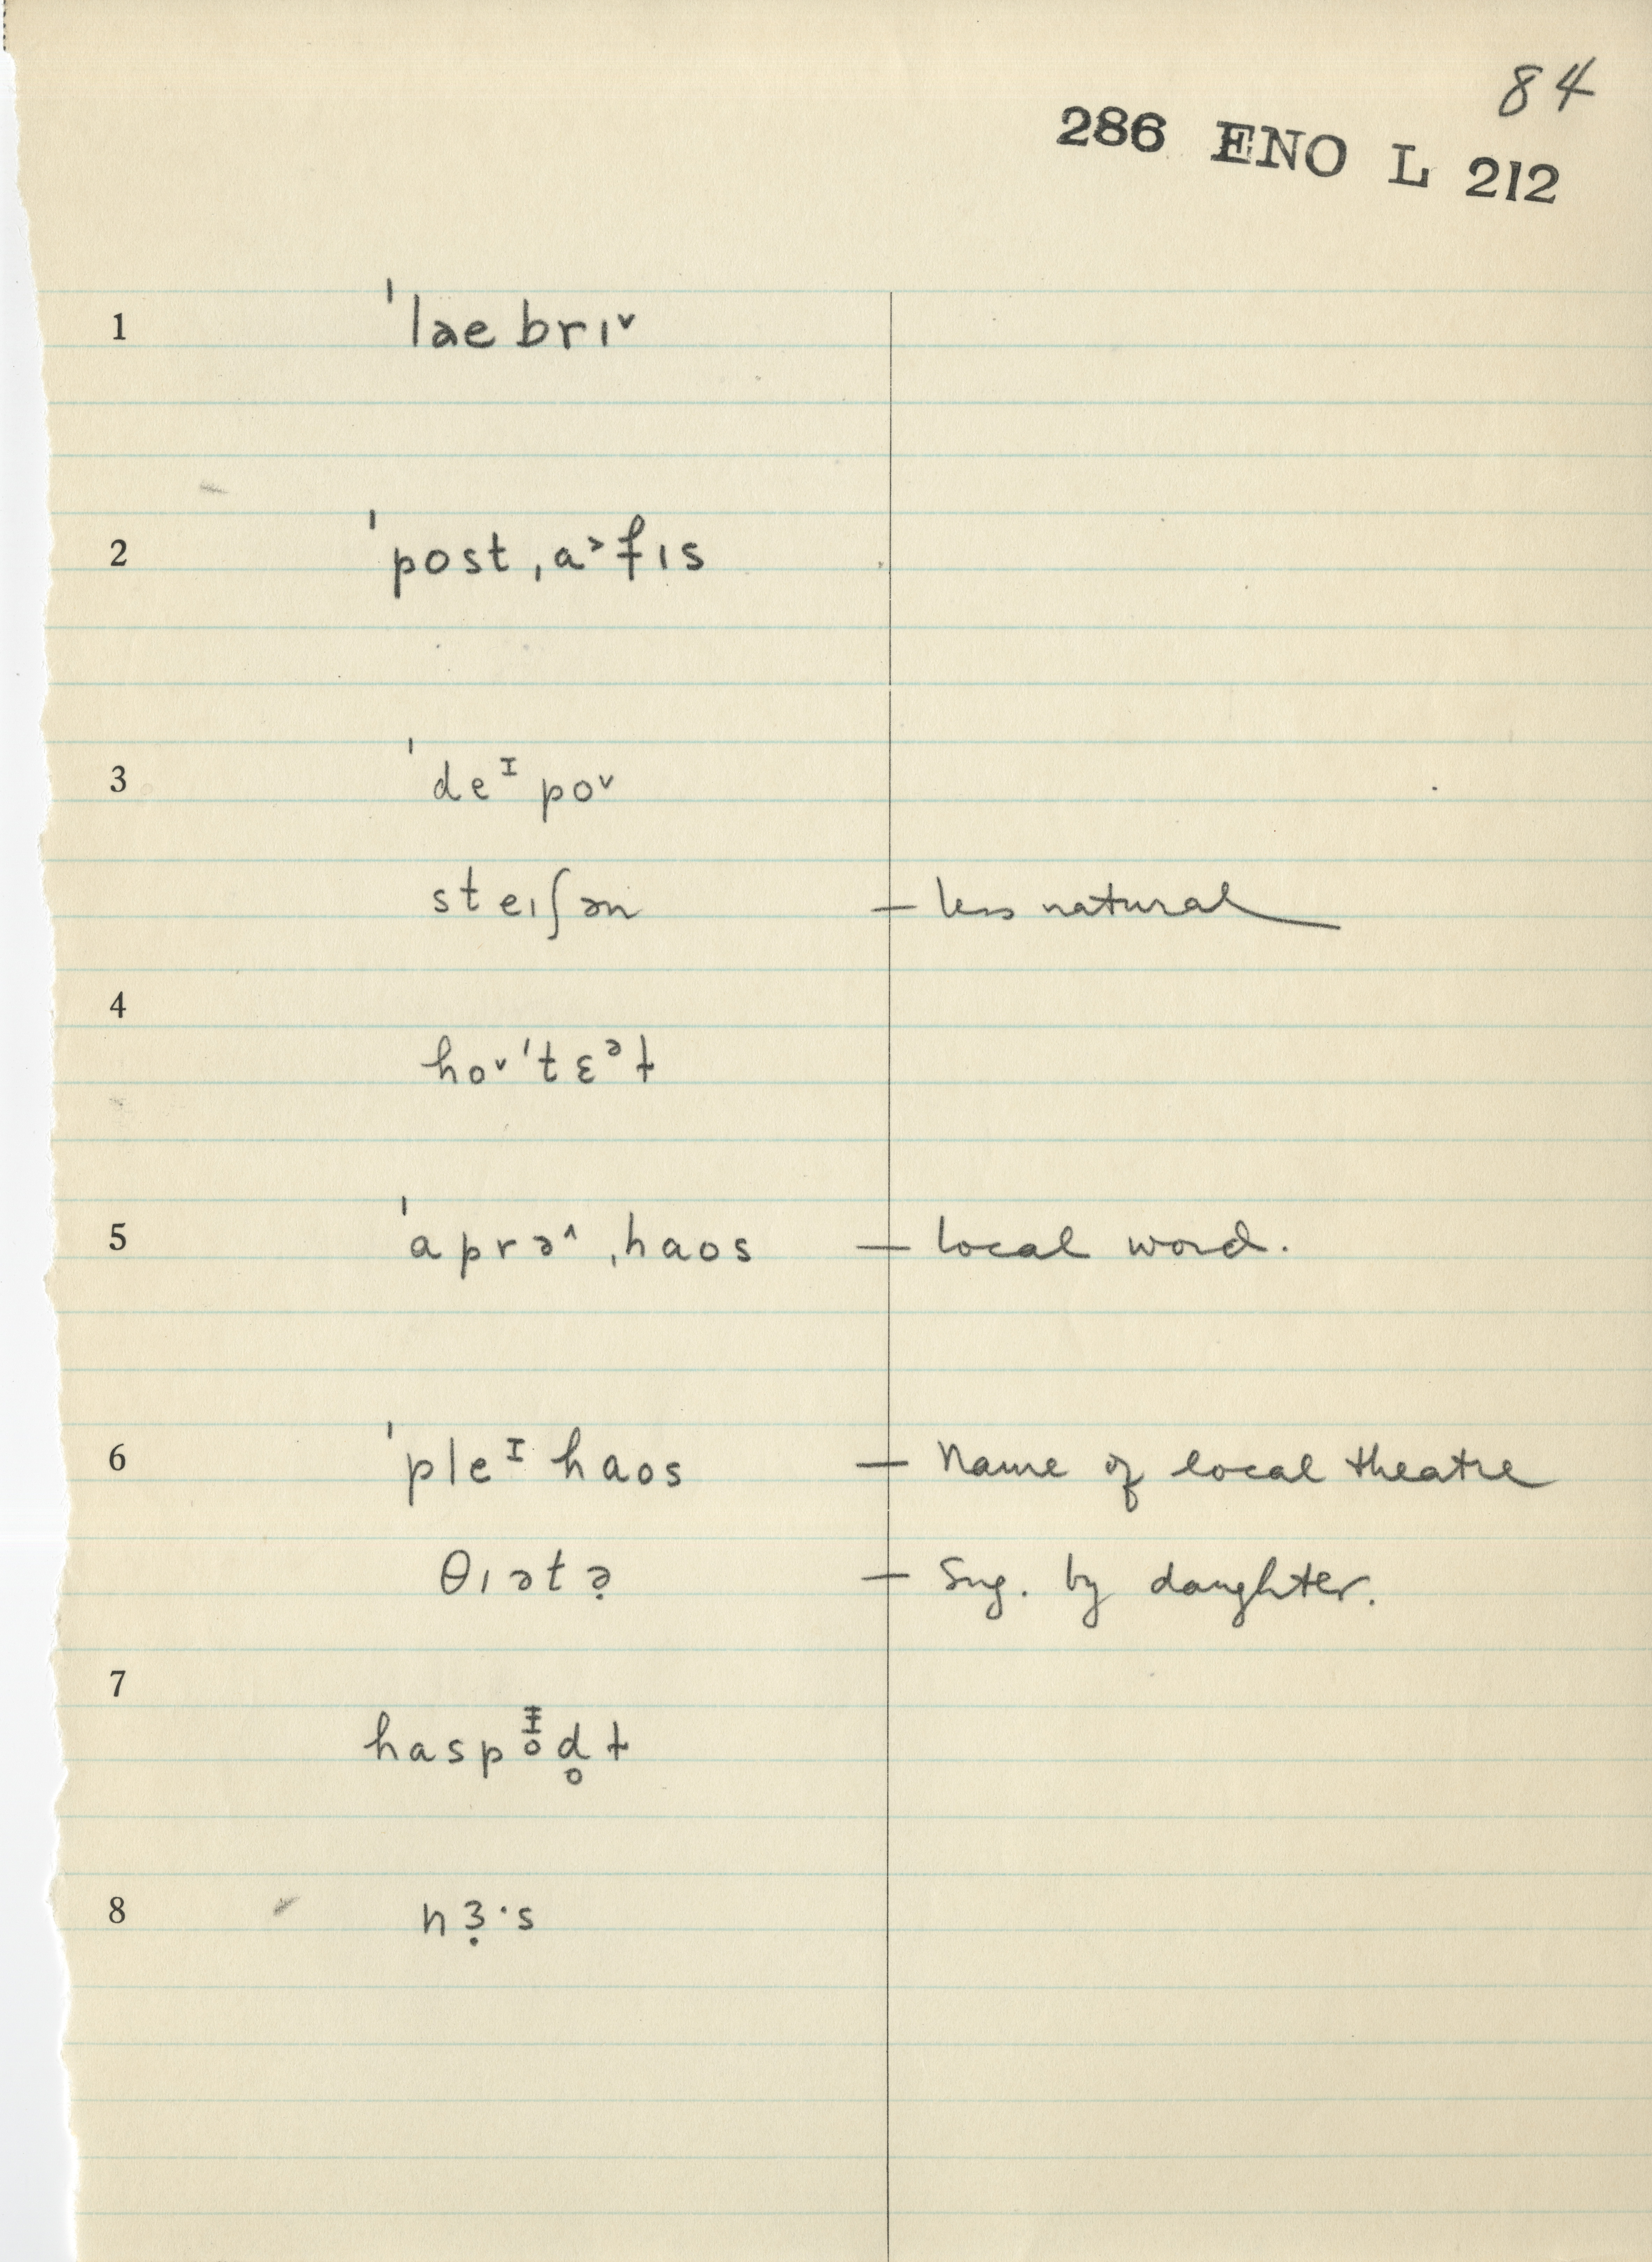 84
286 ENO L 212
1 ˈlaebrɪ˅
2 ˈpost ˌa˃fɪs
3 ˈdeᴵpo˅
steɪʃən — less natural
4
ho˅ˈtɛᵊɫ
5 ˈaprə˄ ˌhaos — local word.
6 ˈpleᴵhaos — Name of local theatre
θɪətə̣ — Sug. by daughter.
7
d̥ɫ
8 nɜ̣·s